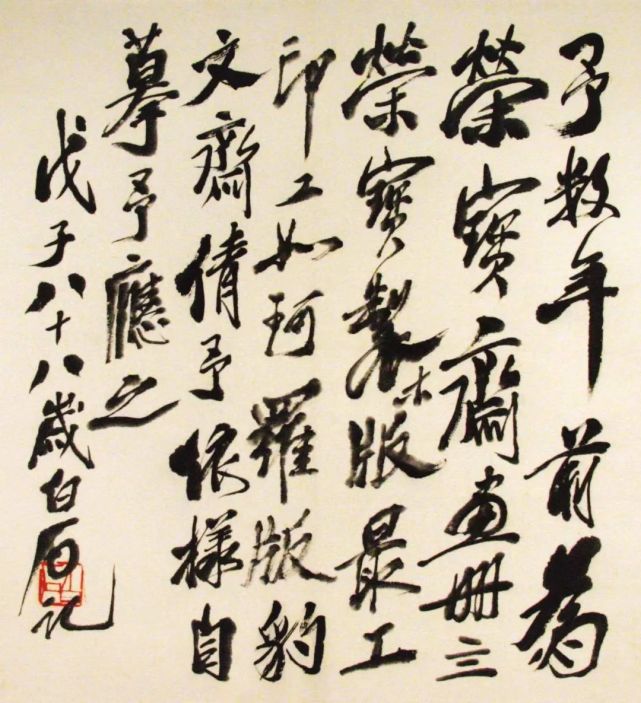 予數年前為
榮寶齋畫册三
榮寶製木版最工
印工如珂羅版豹
文齋倩予依樣自
摹予應之
戊子八十八歲白石記